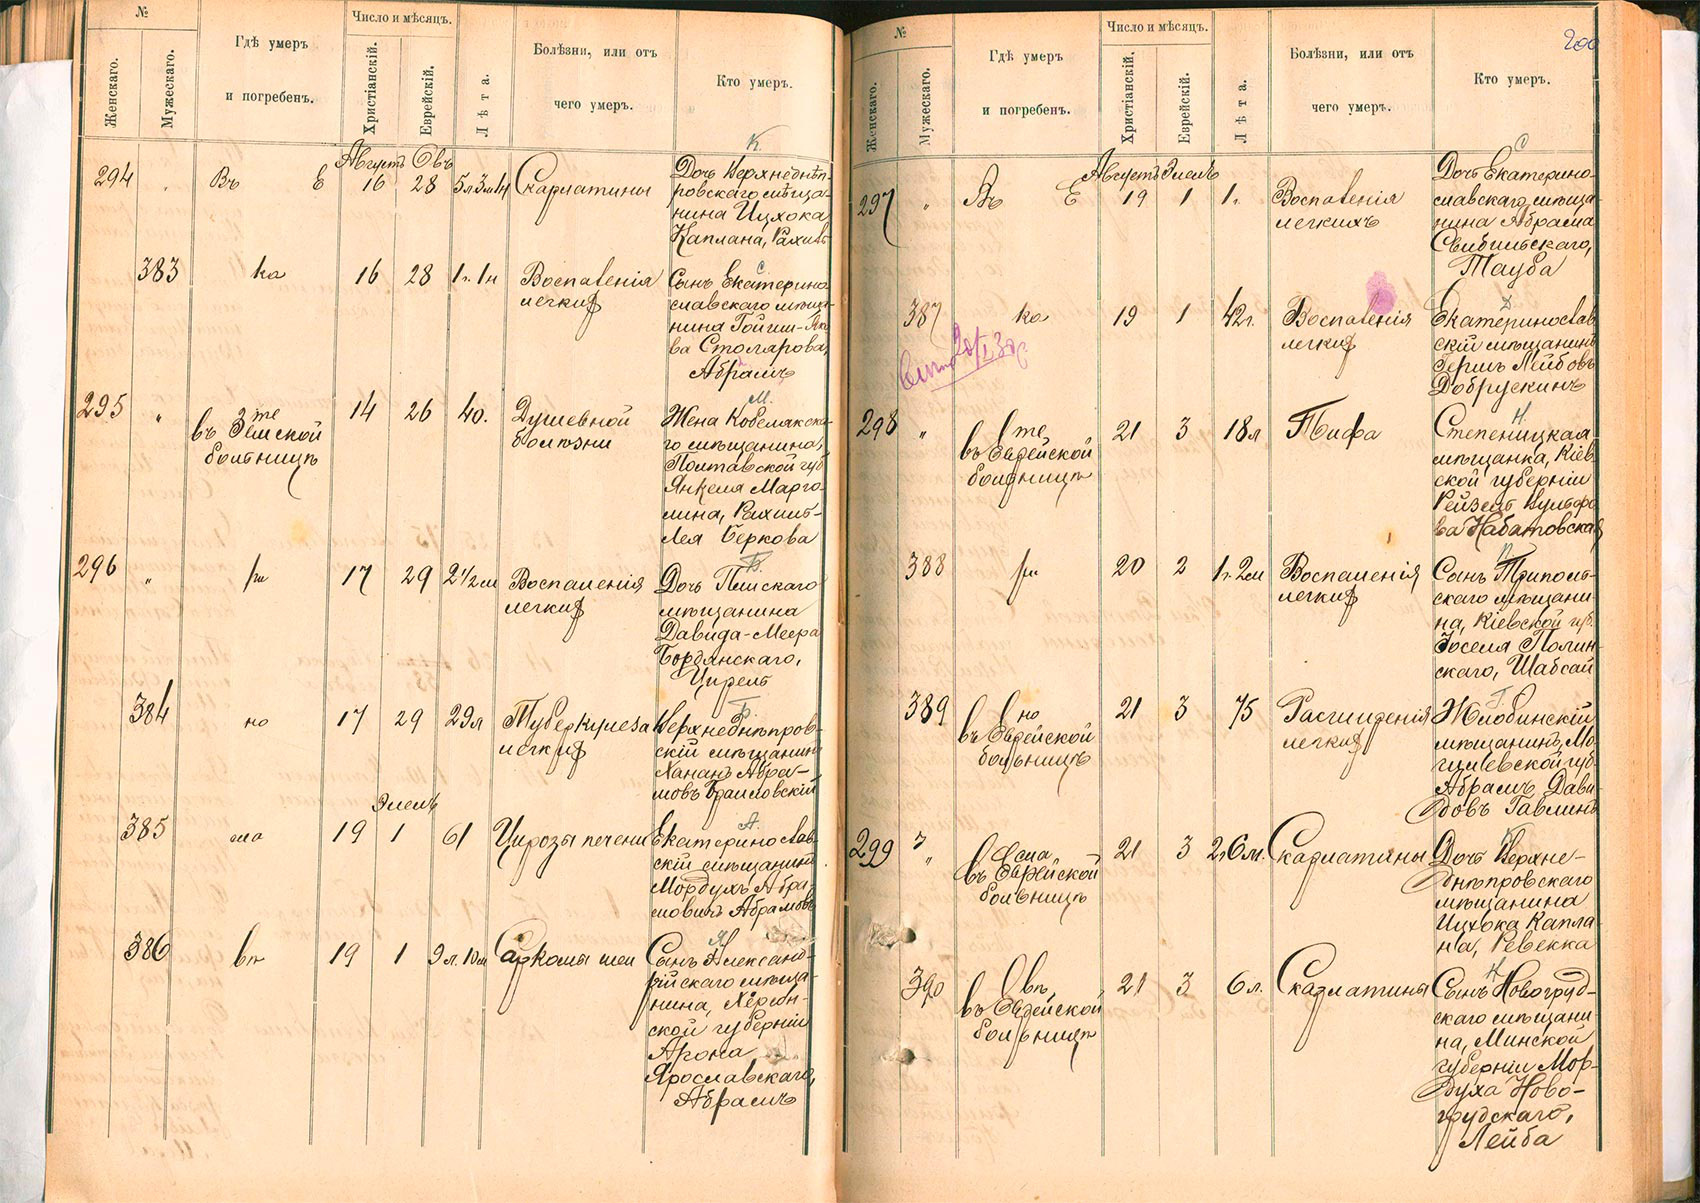 №
Число и мѣсяцъ.
Женскаго.
Мужескаго.
Гдѣ умеръ
и погребенъ.
Христіанскій.
Еврейскій.
Лѣта.
Болѣзни, или отъ
чего умеръ.
Кто умеръ.
К.
Августъ Овъ
294 „ Въ Е 16 28 Скарлатины
Дочь Верхнеднѣп-
ровскаго мѣща-
нина Ицхока
Каплана,
383 ка 16 28 Воспаленія
легкихъ
С
Сынъ Екатерино
славскаго мѣща-
нина
ва Столярова,
Абрамъ
295 „ те
въ Земской
больницѣ
14 26 40.
Душевной
болѣзни
М.
Жена Кобелякска-
го мѣщанина,
Полтавской губ
Янкеля Марго-
лина, Рахиль-
Лея Беркова
296 „ ри 17 29 2½ м
Воспаленія
легкихъ
Б.
Дочь Пинскаго
мѣщанина
Давида-Меера
Бордянскаго,
Цирель
384 но 17 29 29л
Туберкулеза
легкихъ
Б.
Верхнеднѣпров-
скій мѣщанинъ
Хананъ Абра-
мовъ Браиловскій
Элемъ
385 ма 19 1 61 Цирозы печени
А.
Екатеринослав-
скій мѣщанинъ
Мордухъ Абра-
мовичъ Абрамовъ
386 вѣ 19 1 9 л. 10м Саркомы шеи
Я
Сынъ Александ-
рійскаго мѣща-
нина, Херсон-
ской губерніи
Арона
Ярославскаго,
Абрамъ
200
№
Число и мѣсяцъ.
Женскаго.
Мужескаго.
Гдѣ умеръ
и погребенъ.
Христіанскій.
Еврейскій.
Лѣта.
Болѣзни, или отъ
чего умеръ.
Кто умеръ.
С
Августъ Элемъ
297 „ Въ Е 19 1 1г.
Воспаленія
легкихъ
Дочь Екатерино-
славскаго мѣща-
нина Абрама
Тауба
387 ка 19 1 42г.
Воспаленія
легкихъ
Д
Екатеринослав
скій мѣщанинъ
Гершъ Лейбовъ
Добрускинъ
298 „ те
въ Еврейской
больницѣ
21 3 18л Тифа
Н
мѣщанка, Кіев-
ской губерніи
Рейзель Вульфо
ва Набатовская
388 ри 20 2 1г. 2м
Воспаленія
легкихъ
П
Сынъ Триполь-
скаго мѣщани-
на, Кіевской губ.
Іоселя Полин-
скаго, Шабсай
389 но
въ Еврейской
больницѣ
21 3 75
Расширенія
легкихъ
Г.
Жлобинскій
мѣщанинъ, Мо-
гилевской губ
Абрамъ Дави-
довъ Гавлинъ
299 „ сма
въ Еврейской
больницѣ
21 3 2г 6м. Скарлатины
К
Дочь Верхне-
днѣпровскаго
мѣщанина
Ицхока Капла-
на, Ревекка
390 вѣ,
въ Еврейской
больницѣ
21 3 6 л. Скарлатины
Н
Сынъ Новогруд-
скаго мѣщани-
на, Минской
губерніи Мор-
духа Ново-
грудскаго,
Лейба